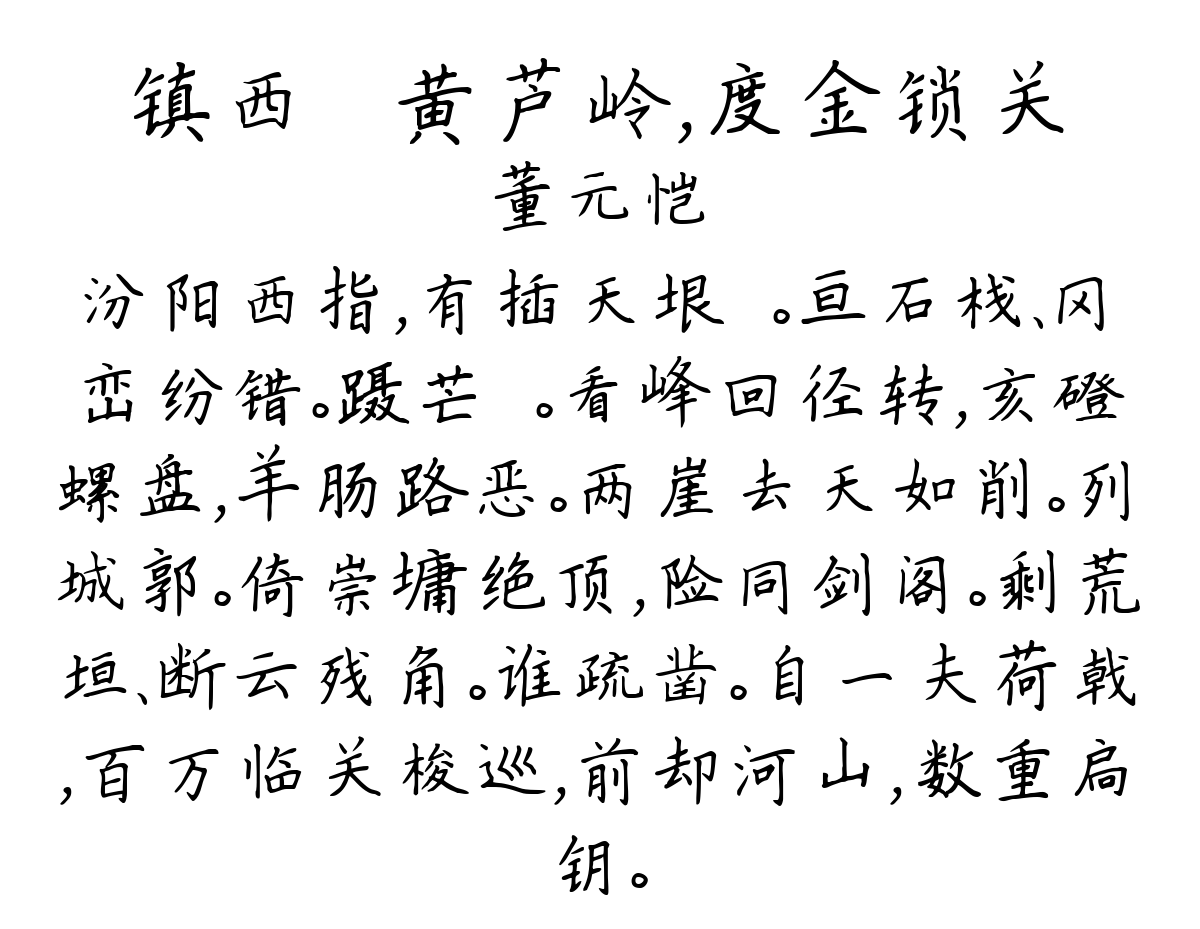 镇西　黄芦岭,度金锁关
董元恺
汾阳西指,有插天垠 。亘石栈、冈
峦纷错。蹑芒 。看峰回径转,亥磴
螺盘,羊肠路恶。两崖去天如削。列
城郭。倚崇墉绝顶,险同剑阁。剩荒
垣、断云残角。谁疏凿。自一夫荷戟
,百万临关梭巡,前却河山,数重扃
钥。